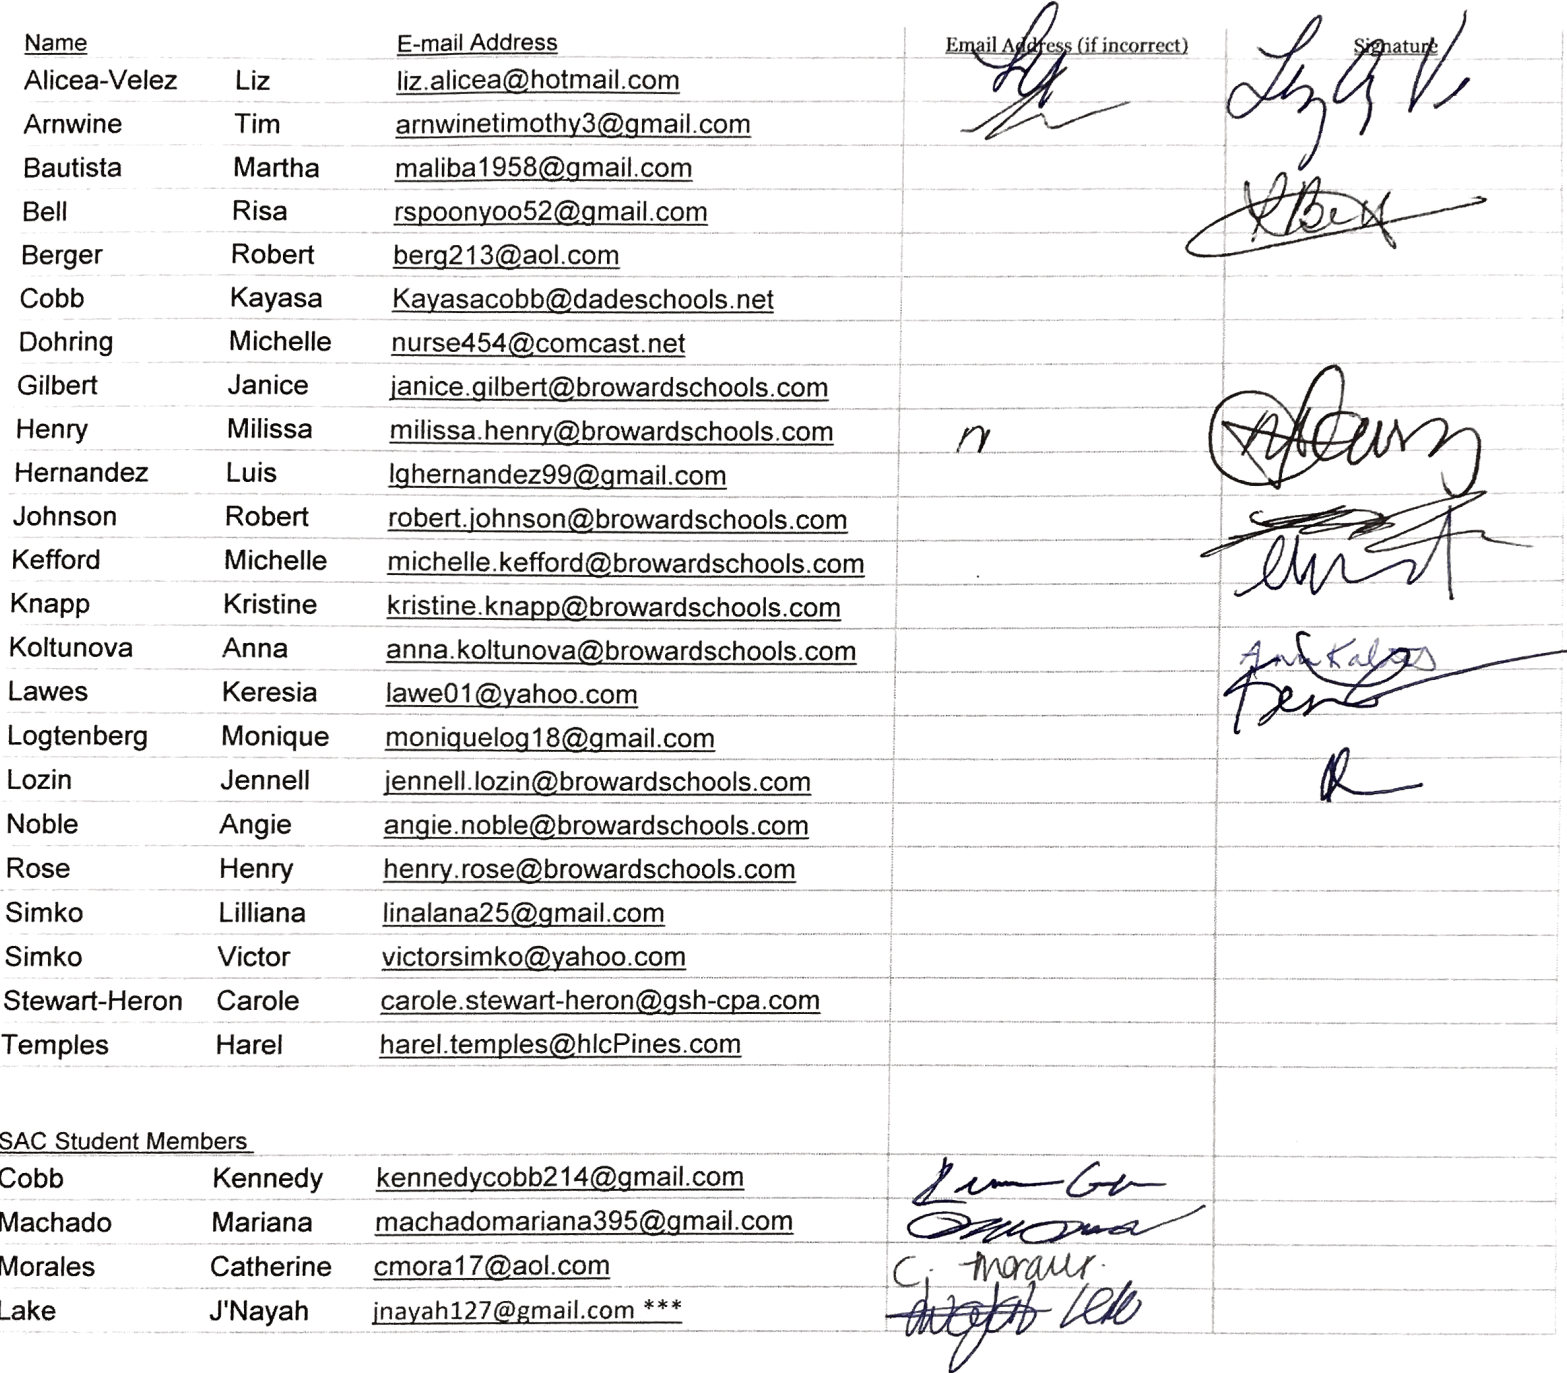 Name E-mail Address Email Address (if incorrect) Signature
Alicea-Velez Liz liz.alicea@hotmail.com
Arnwine Tim arnwinetimothy3@gmail.com
Bautista Martha maliba1958@gmail.com
Bell Risa rspoonyoo52@gmail.com
Berger Robert berg213@aol.com
Cobb Kayasa Kayasacobb@dadeschools.net
Dohring Michelle nurse454@comcast.net
Gilbert Janice janice.gilbert@browardschools.com
Henry Milissa milissa.henry@browardschools.com
Hernandez Luis lghernandez99@gmail.com
Johnson Robert robert.johnson@browardschools.com
Kefford Michelle michelle.kefford@browardschools.com
Knapp Kristine kristine.knapp@browardschools.com
Koltunova Anna anna.koltunova@browardschools.com
Lawes Keresia lawe01@yahoo.com
Logtenberg Monique moniquelog18@gmail.com
Lozin Jennell jennell.lozin@browardschools.com
Noble Angie angie.noble@browardschools.com
Rose Henry henry.rose@browardschools.com
Simko Lilliana linalana25@gmail.com
Simko Victor victorsimko@yahoo.com
Stewart-Heron Carole carole.stewart-heron@gsh-cpa.com
Temples Harel harel.temples@hlcPines.com
SAC Student Members
Cobb Kennedy kennedycobb214@gmail.com
Machado Mariana machadomariana395@gmail.com
Morales Catherine cmora17@aol.com C.
Lake J'Nayah jnayah127@gmail.com ***